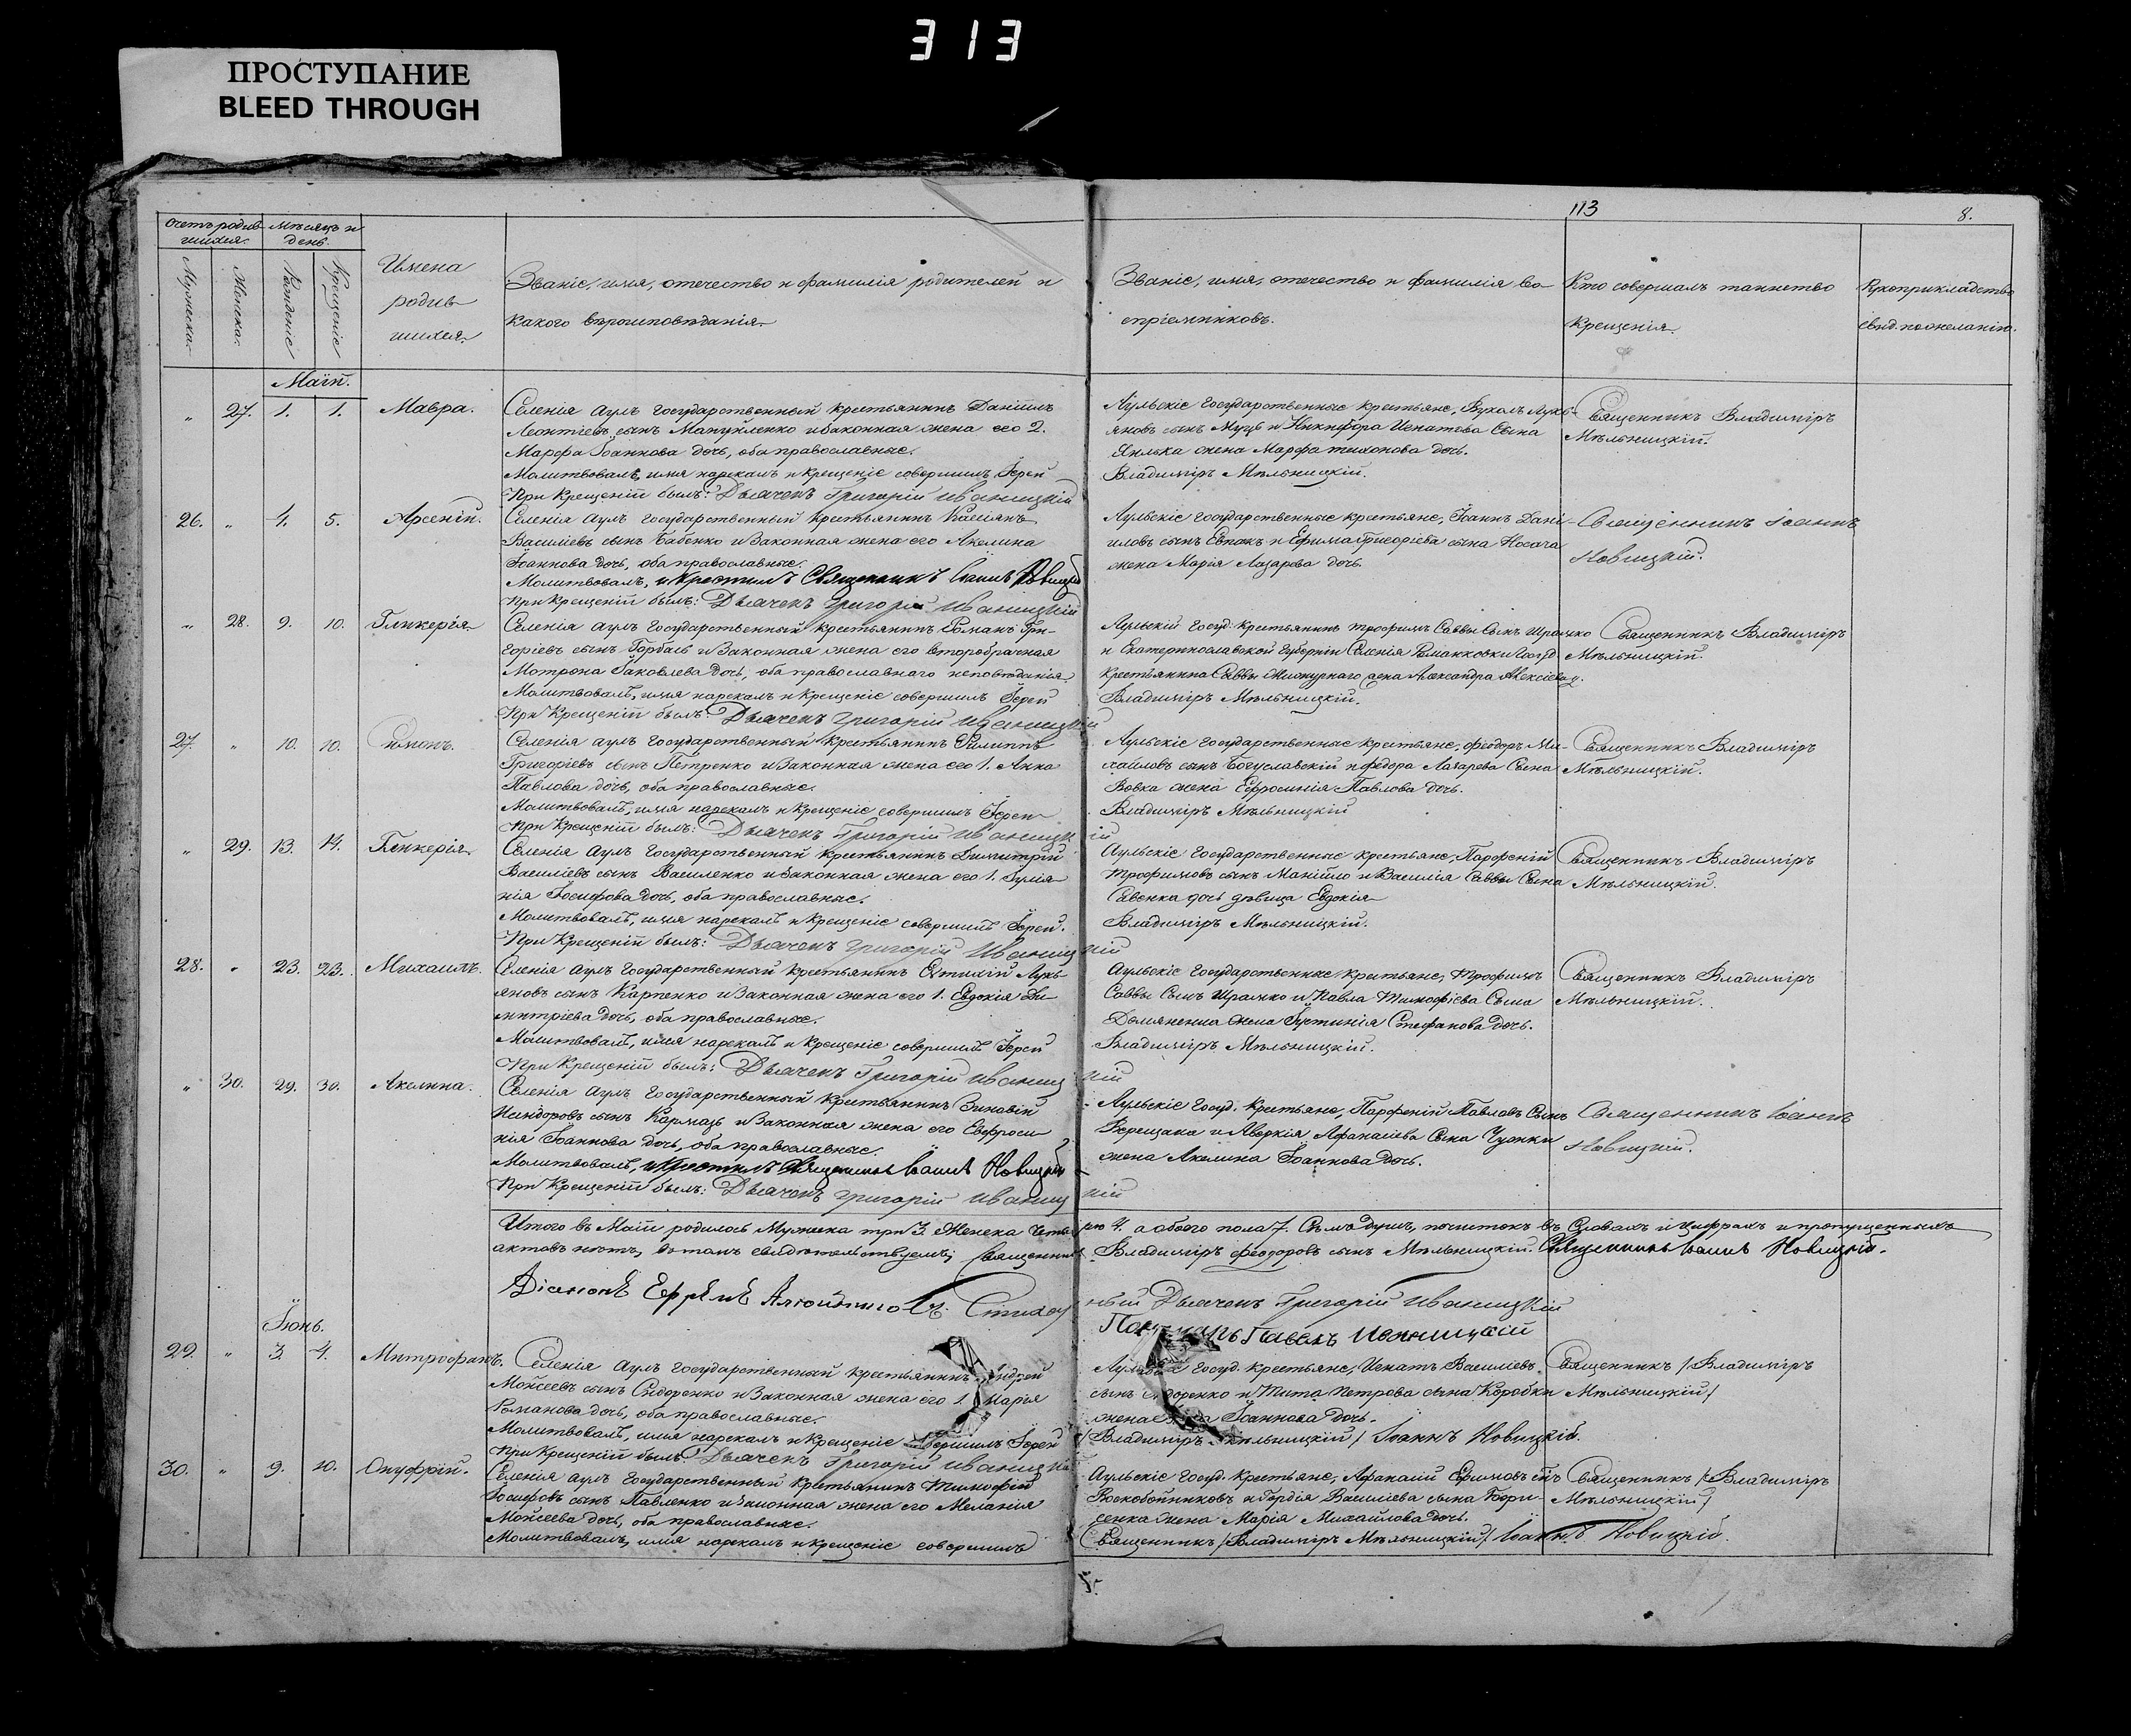 313
ПРОСТУПАНИЕ
BLEED THROUGH
113
8.
Счетъ родив
шихся.
Мѣсяцъ и
день.
Мужеска.
Женска.
Рожденіе
Крещеніе
Имена
родив
шихся.
Званіе, имя, отечество и фамилія родителей и
какого вѣроисповѣданія.
Званіе, имя, отечество и фамилія во
спріемниковъ.
Кто совершалъ таинство
крещенія.
Рукоприкладство
свид. по желанію.
Маій.
„ 27. 1. 1. Мавра.
Селенія Аулъ государственный крестьянинъ Даніилъ
Леонтіевъ сынъ Мануйленко и законная жена его 2.
Марфа Іоаннова дочь, оба православные.
Молитвовалъ, имя нарекалъ и крещеніе совершилъ Іерей
При крещеніи былъ: Дьячекъ Григорій Иваницкій
Аульскіе государственные крестьяне, Вуколъ Лукь-
яновъ сынъ Муць и Никифора Игнатова сына
жена Марфа Тихонова дочь.
Владиміръ Мѣльницкій.
Священникъ Владиміръ
Мѣльницкій.
26. „ 4. 5. Арсеній.
Селенія Аулъ государственный крестьянинъ Касіянъ
Василіевъ сынъ Бабенко и законная жена его Акелина
Іоаннова дочь, оба православные.
Молитвовалъ, и крестилъ Священникъ Іоаннъ Новицкій
При крещеніи былъ: Дьячекъ Григорій Иваницкій
Аульскіе государственные крестьяне, Іоаннъ Дані-
иловъ сынъ Евпакъ и Ефима Григоріева сына Носача
жена Марія Лазарева дочь.
Священникъ Іоаннъ
Новицкій.
„ 28. 9. 10. Гликерія.
Селенія Аулъ государственный крестьянинъ Романъ Гри-
горіевъ сынъ Горбась и законная жена его второбрачная
Мотрона Іаковлева дочь, оба православнаго исповѣданія
Молитвовалъ, имя нарекалъ и крещеніе совершилъ Іерей
При крещеніи былъ: Дьячекъ Григорій Иваницкій
Аульскій госуд. крестьянинъ Трофимъ Саввы сынъ Шрамко
и Екатеринославской губерніи селенія Романковки госуд.
крестьянина Саввы жена Александра Алексіева д.
Владиміръ Мѣльницкій.
Священникъ Владиміръ
Мѣльницкій.
27. „ 10. 10. Симонъ.
Селенія Аулъ государственный крестьянинъ Филиппъ
Григоріевъ сынъ Петренко и законная жена его 1. Анна
Павлова дочь, оба православные.
Молитвовалъ, имя нарекалъ и крещеніе совершилъ Іерей
При крещеніи былъ: Дьячекъ Григорій Иваницкій
Аульскіе государственные крестьяне, Феодоръ Ми-
хайловъ сынъ Богуславскій и Федора Лазарева сына
Вовка жена Ефросинія Павлова дочь.
Владиміръ Мѣльницкій
Священникъ Владиміръ
Мѣльницкій.
„ 29. 13. 14. Гликерія.
Селенія Аулъ государственный крестьянинъ Димитрій
Василіевъ сынъ Василенко и законная жена его 1. Іулія-
нія Іосифова дочь, оба православные.
Молитвовалъ, имя нарекалъ и крещеніе совершилъ Іерей.
При крещеніи былъ: Дьячекъ Григорій Иваницкій
Аульскіе государственные крестьяне, Парфеній
Трофимовъ сынъ Манійло и Василія Саввы сына
Савенка дочь дѣвица Евдокія
Владиміръ Мѣльницкій.
Священникъ Владиміръ
Мѣльницкій.
28. „ 23. 23. Михаилъ.
Селенія Аулъ государственный крестьянинъ Евтихій Лукь-
яновъ сынъ Карпенко и законная жена его 1. Евдокія Ди-
митріева дочь, оба православные.
Молитвовалъ, имя нарекалъ и крещеніе совершилъ Іерей
При крещеніи былъ: Дьячекъ Григорій Иваницкій
Аульскіе государственные крестьяне, Трофимъ
Саввы сынъ Шрамко и Павла Тимофіева сына
Демяненка жена Іустинія Стефанова дочь.
Владиміръ Мѣльницкій.
Священникъ Владиміръ
Мѣльницкій.
„ 30. 29. 30. Акелина.
Селенія Аулъ государственный крестьянинъ Зиновій
Исидоровъ сынъ Кармазь и законная жена его Евфроси-
нія Іоаннова дочь, оба православные.
Молитвовалъ, и крестилъ Священникъ Іоаннъ Новицкій
При крещеніи былъ: Дьячекъ Григорій Иваницкій
Аульскіе госуд. крестьяне, Парфеній Павловъ сынъ
Верещака и Аверкія Афанасіева сына Чужки
жена Акелина Іоаннова дочь.
Священникъ Іоаннъ
Новицкій.
Итого въ Маіи родилось Мужска три 3. Женска четыре 4. а обоего пола 7. Семь душъ, почистокъ въ словахъ и цифрахъ и пропущенныхъ
актовъ нѣтъ, въ томъ свидѣтельствуемъ; Священникъ Владиміръ Феодоровъ сынъ Мѣльницкій. Священникъ Іоаннъ Новицкій.
Діаконъ Ефремъ Стихарный Дьячекъ Григорій Иваницкій
Пономарь Павелъ Иваницкій
Іюнь.
29. „ 3. 4. Митрофанъ.
Селенія Аулъ государственный крестьянинъ Андрей
Моисеевъ сынъ Сидоренко и законная жена его 1. Марія
Романова дочь, оба православные.
Молитвовалъ, имя нарекалъ и крещеніе совершилъ Іерей
При крещеніи былъ Дьячекъ Григорій Иваницкій
Аульскіе госуд. крестьяне, Игнатъ Василіевъ
сынъ Сидоренко и Тита Петрова сына Коробки
жена Іоаннова дочь.
/Владиміръ Мѣльницкій/ Іоаннъ Новицкій.
Священникъ /Владиміръ
Мѣльницкій/
30. „ 9. 10. Онуфрій.
Селенія Аулъ государственный крестьянинъ Тимофій
Іосифовъ сынъ Павленко и законная жена его Меланія
Моисеева дочь, оба православные.
Молитвовалъ, имя нарекалъ и крещеніе совершилъ
Аульскіе госуд. крестьяне, Афанасій Ефимовъ снъ
Воскобойниковъ и Гордія Василіева сына Бори-
сенка жена Марія Михайлова дочь.
Священникъ /Владиміръ Мѣльницкій/ Іоаннъ Новицкій.
Священникъ /Владиміръ
Мѣльницкій/